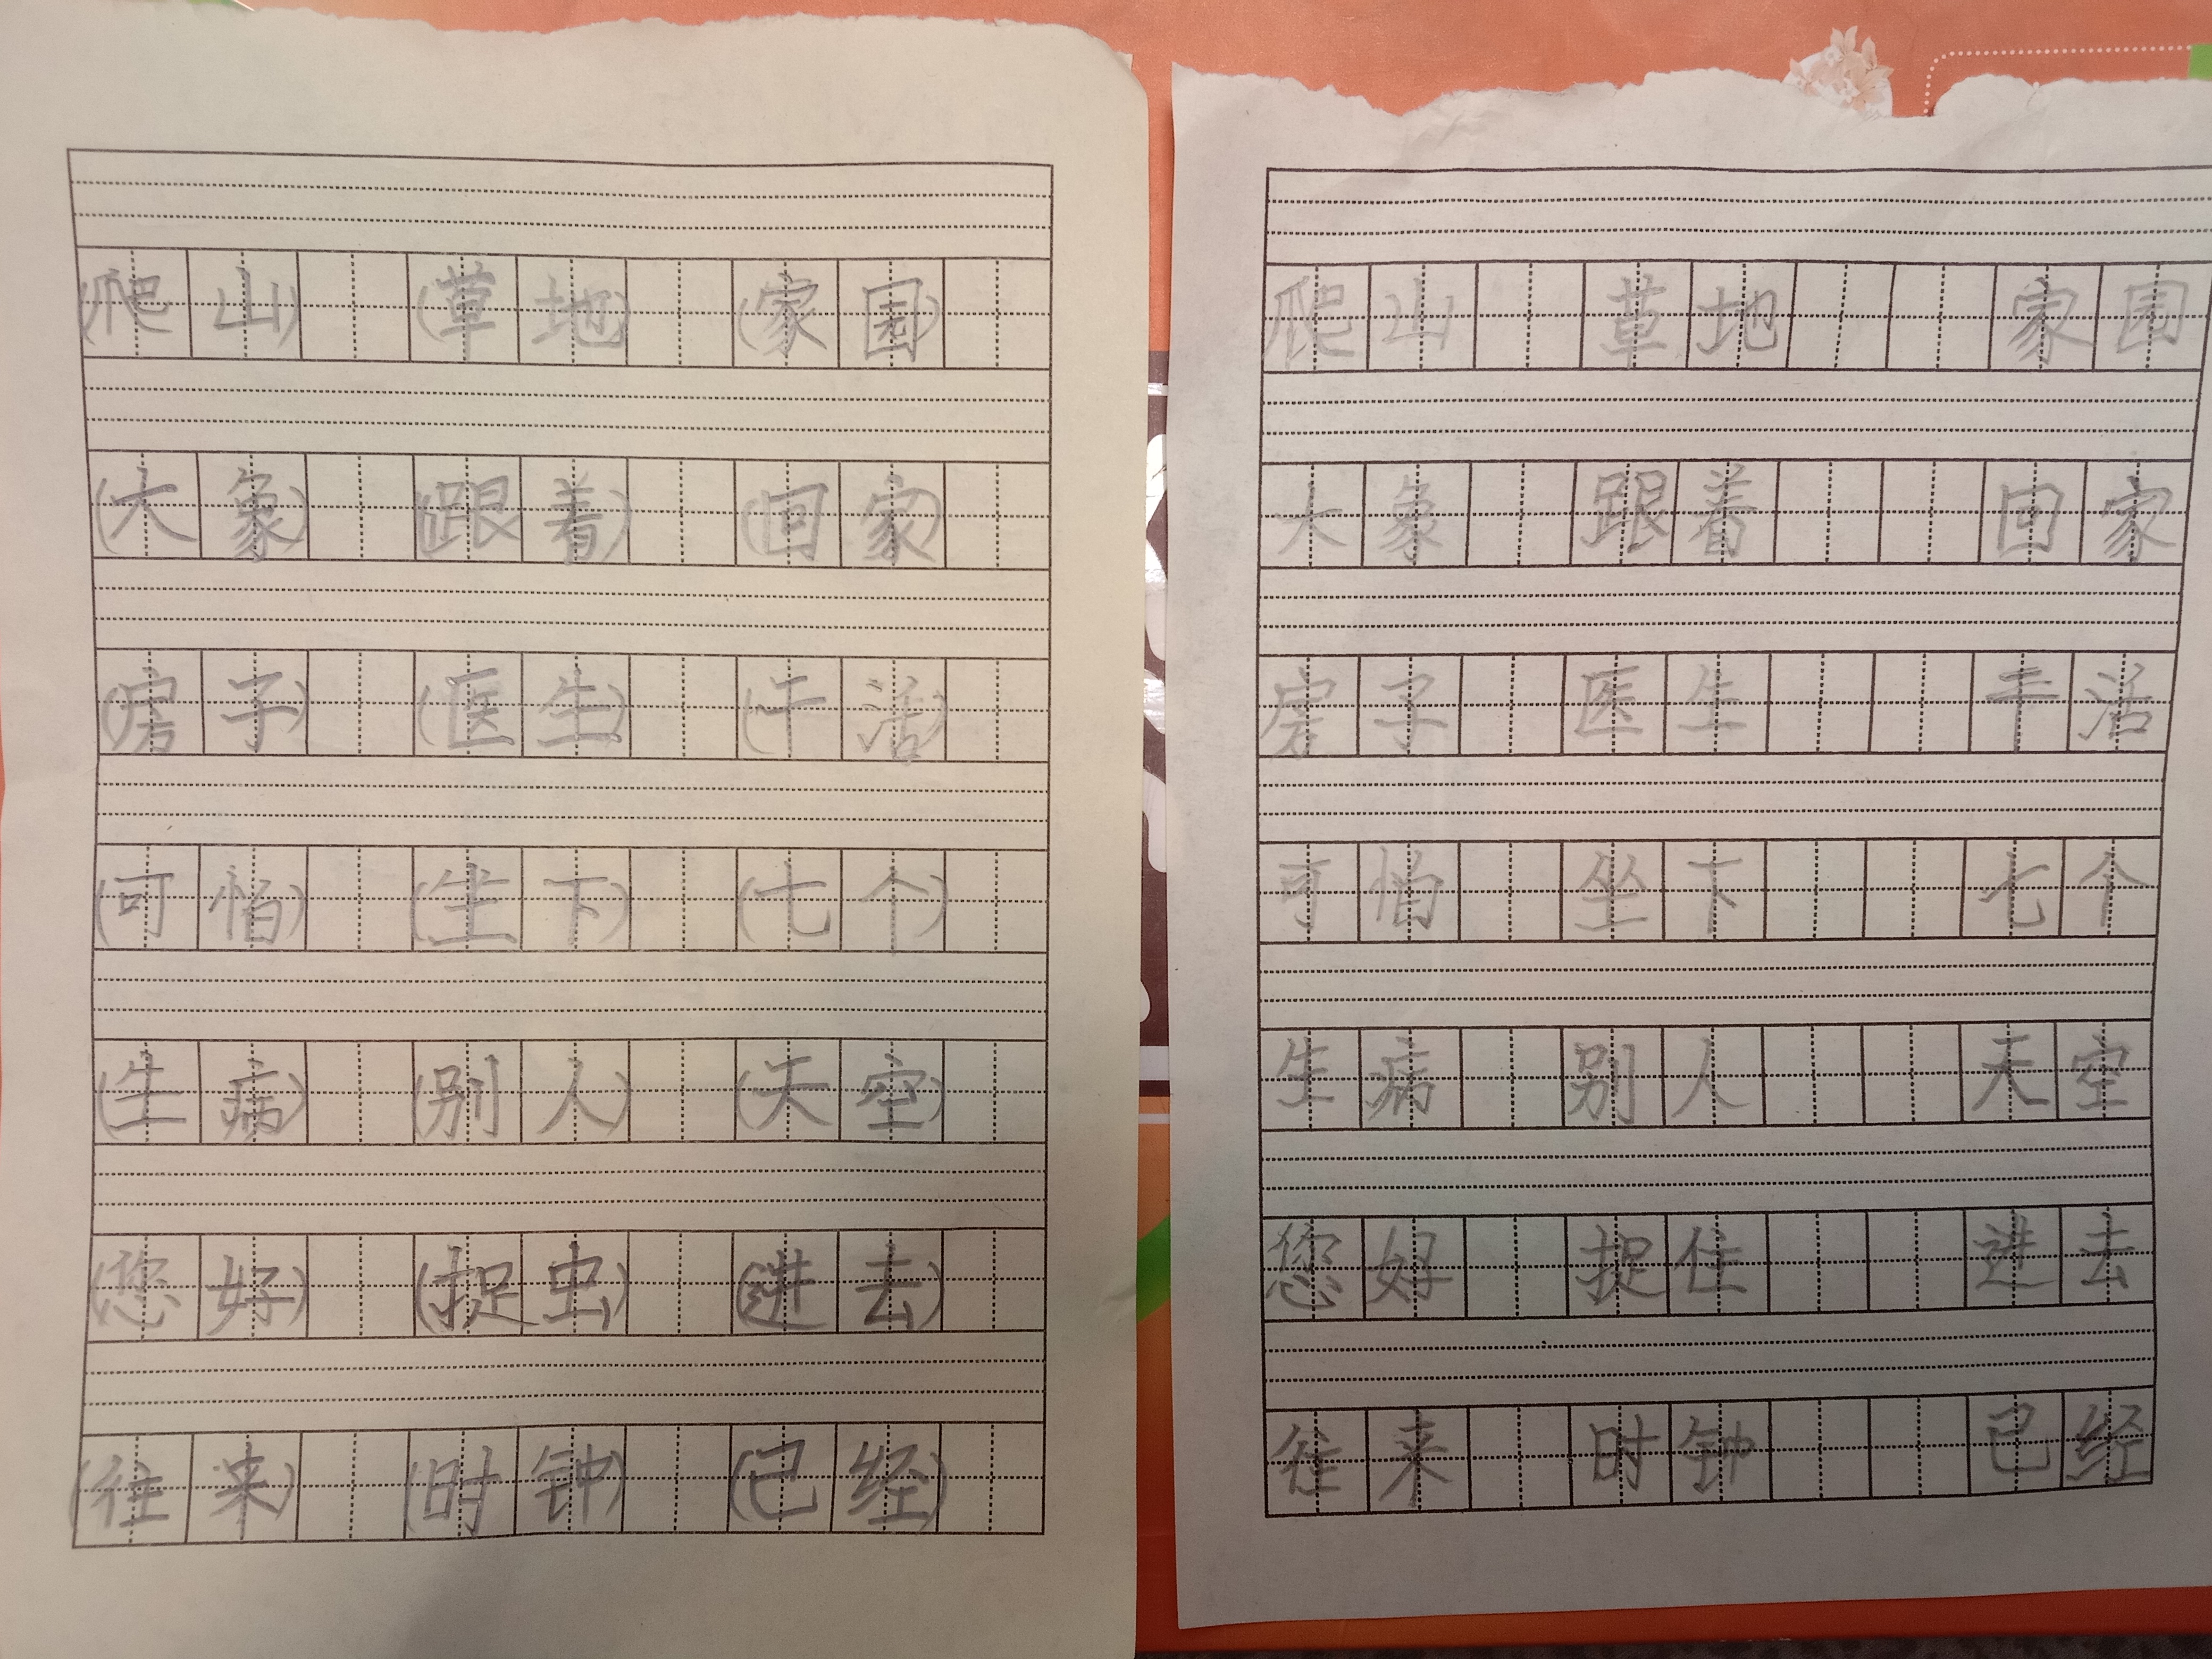 (爬山) (草地) (家园)
(大象) (跟着) (回家)
(房子) (医生) (干活)
(可怕) (坐下) (七个)
(生病) (别人) (天空)
(您好) (捉虫) (进去)
(往来) (时钟) (已经)
爬山 草地 家园
大象 跟着 回家
房子 医生 干活
可怕 坐下 七个
生病 别人 天空
您好 捉住 进去
往来 时钟 已经